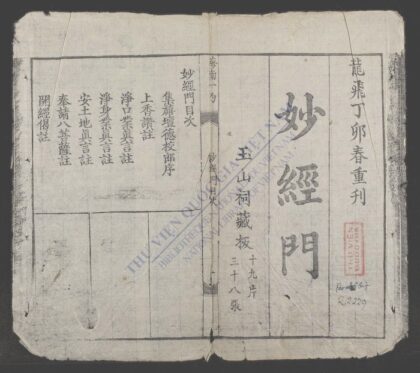 龍飛丁卯春重刊
妙經門
玉山祠藏板
十九片
三十八張
妙經門目次
壇德校郎序
上香讚註
淨口業真言註
淨身業真言註
安土地真言註
奉請八菩薩註
開經偈註
THƯ VIỆN QUỐC GIA VIỆT NAM
NATIONAL LIBRARY OF VIETNAM
R.2220